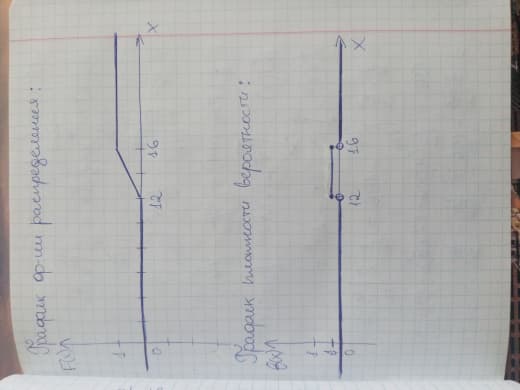 График ф-ии распределения:
F(x)
1
0
12
16
x
График плотности вероятности:
f(x)
1
0
12
16
x